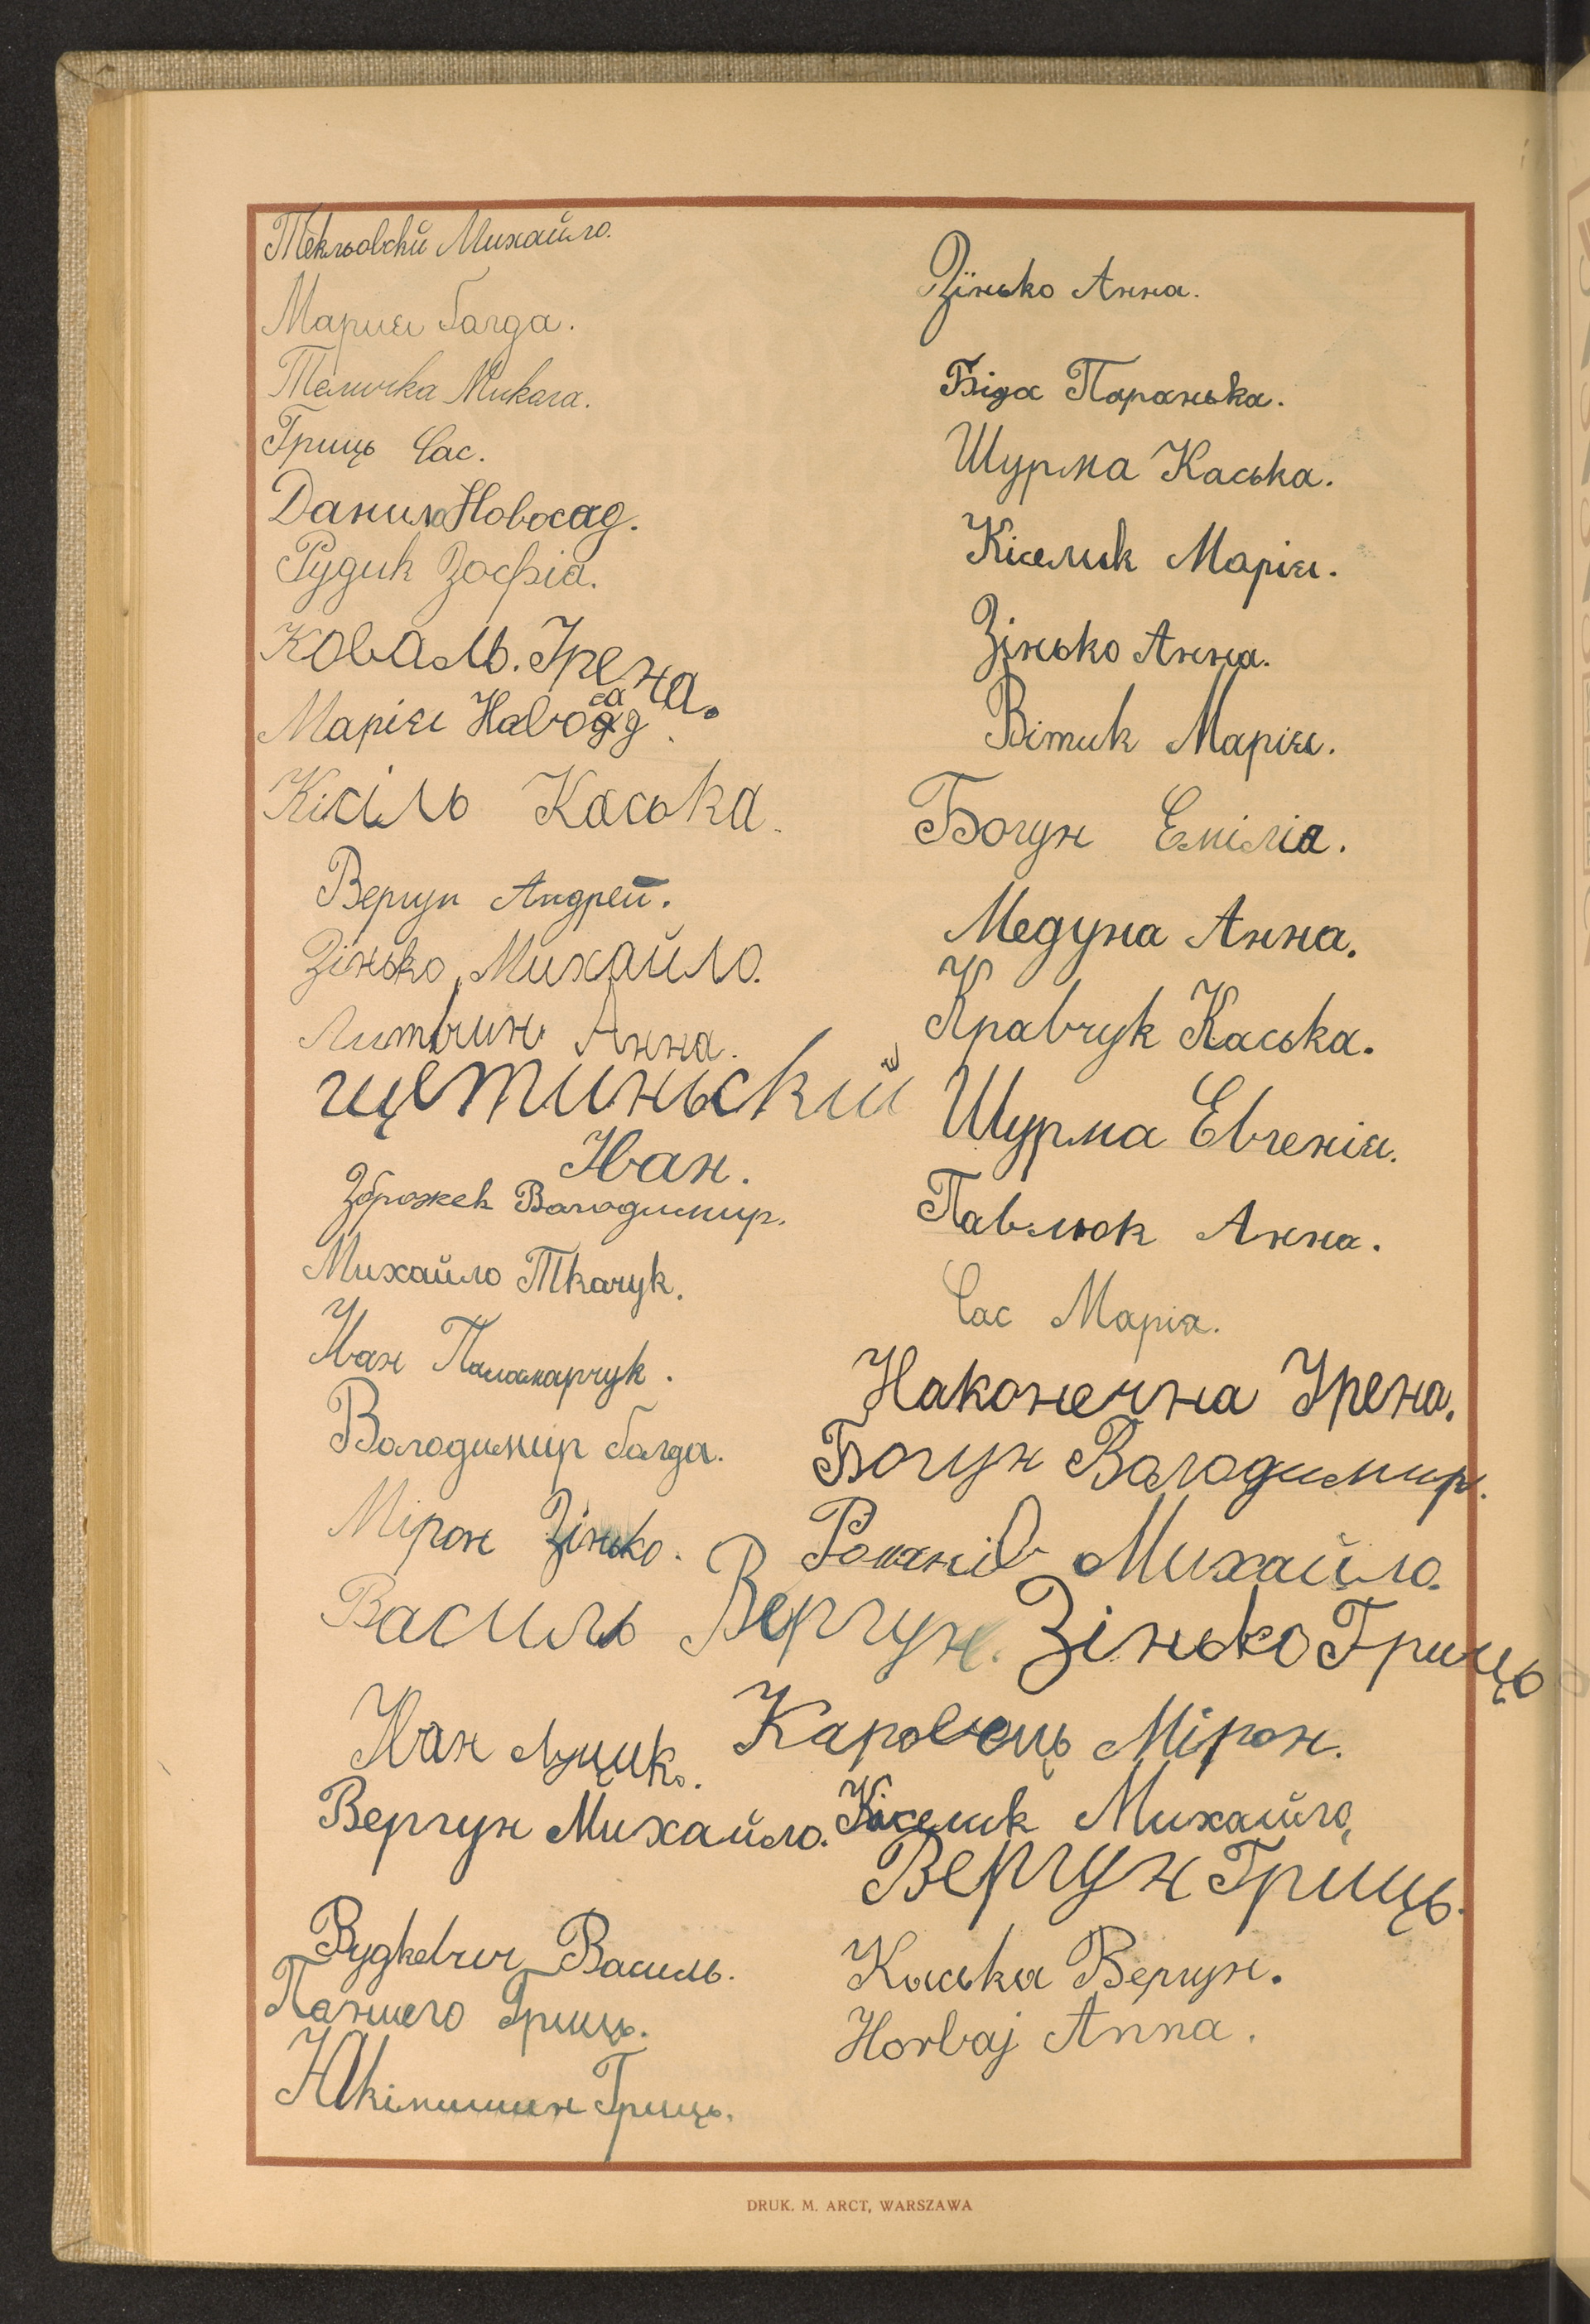 Текльовскй Михайло.
Мария балда.
Теличка Микола.
Гриць Сас.
Данило Новосад.
Рудик Зосфіа.
Коваль. Ірена.
Марія Навосад.
Кісіль Каська.
Вергун Андрей.
Зінько Михайло.
Литвин Анна.
щетиньский
Іван.
Зброжек Володимир.
Михайло Ткачук.
Іван Паламарчук.
Володимир балда.
Мірон Зінько.
Василь Вергун.
Іван Луцик.
Вергун Михайло.
Рудкевич Василь.
Гриць.
Якімишин Гриць.
Зїнько Анна.
Біда Паранька.
Шурма Каська.
Кіселик Марія.
Зінько Анна.
Вітик Марія.
Богун Емілія.
Медуна Анна.
Кравчук Каська.
Шурма Евгенія.
Павлюк Анна.
Сас Марія.
Наконечна Ірена.
Богун Володимир.
Романів Михайло.
Зінько Гриць
Каровець Мірон.
Кіселик Михайло,
Вергун Гриць.
Каська Вергун.
Horbaj Anna.
DRUK. M. ARCT, WARSZAWA